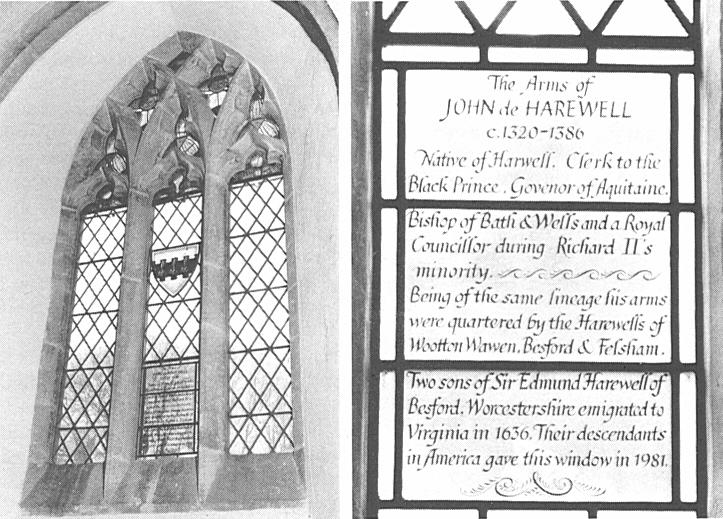 The Arms of
JOHN de HAREWELL
c.1320-1386
Native of Harwell. Clerk to the
Black Prince. Govenor of Aquitaine.
Bishop of Bath & Wells and a Royal
Councillor during Richard II's
minority.
Being of the same lineage his arms
were quartered by the Harewells of
Wootton Wawen, Besford & Felsham.
Two sons of Sir Edmund Harewell of
Besford, Worcestershire emigrated to
Virginia in 1636. Their descendants
in America gave this window in 1981.